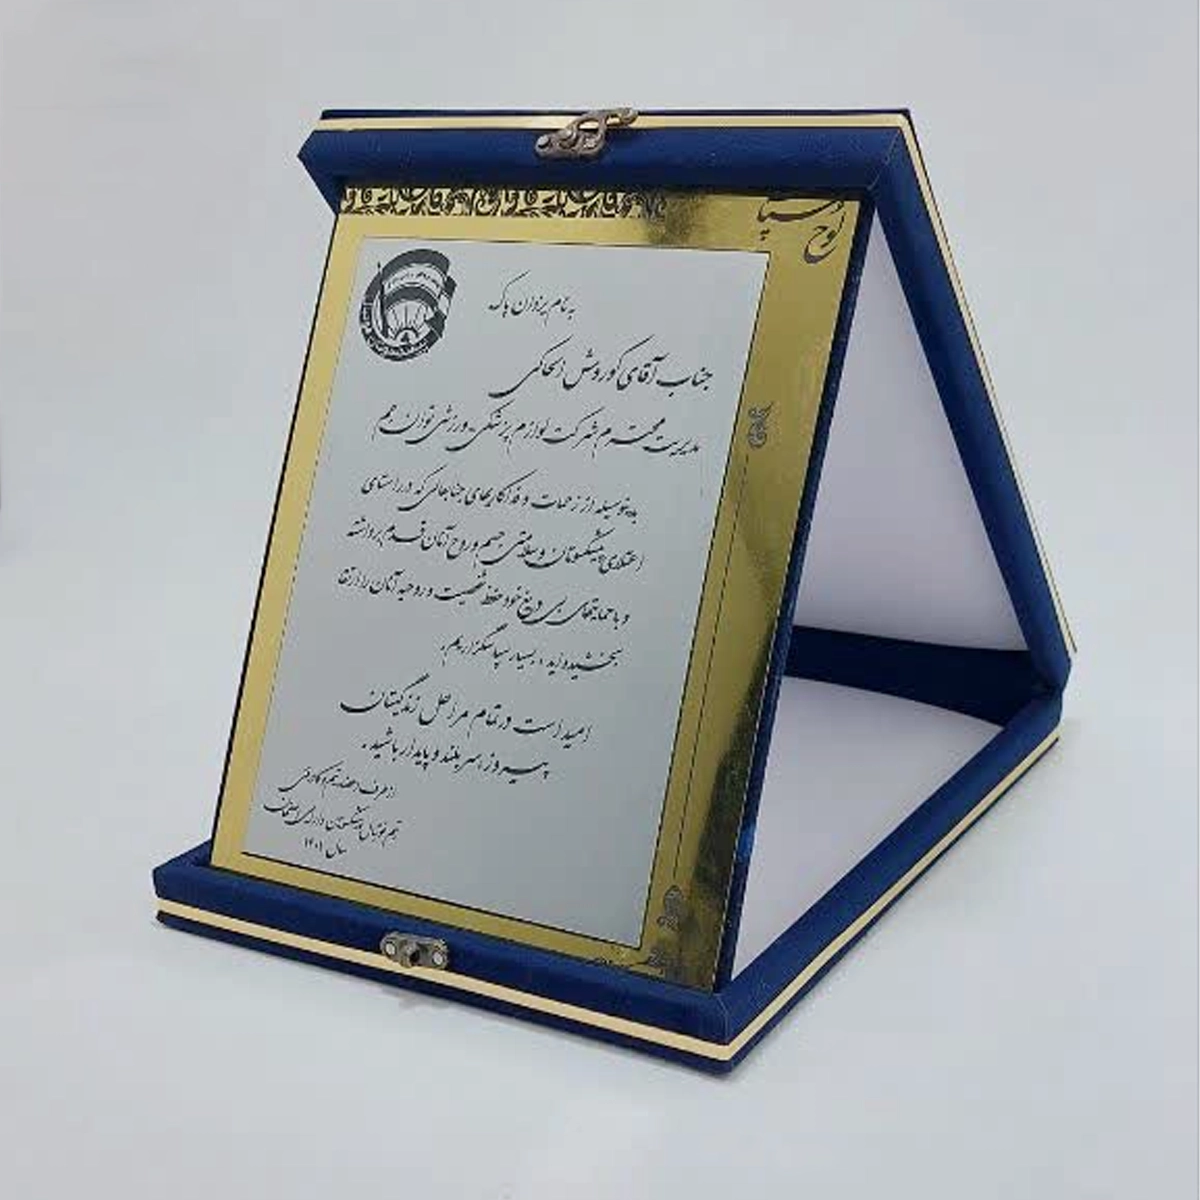 لوح سپاس
به نام یزدان پاک
جناب آقای کوروش اسحاکی
مدیریت محترم شرکت لوازم پزشکی ورزشی توان جم
بدینوسیله از زحمات و فداکاریهای جنابعالی که در راستای
اعتلای پیشکسوتان و سلامتی جسم و روح آنان قدم برداشته
و با حمایتهای بی دریغ خود حفظ شخصیت و روحیه آنان را ارتقا
بخشیده اید، بسیار سپاسگزاریم.
امید است در تمام مراحل زندگیتان
پیروز، سربلند و پایدار باشید.
از طرف اعضاء تیم و کادر فنی
تیم فوتبال پیشکسوتان دارای اصفهان
سال ۱۴۰۱